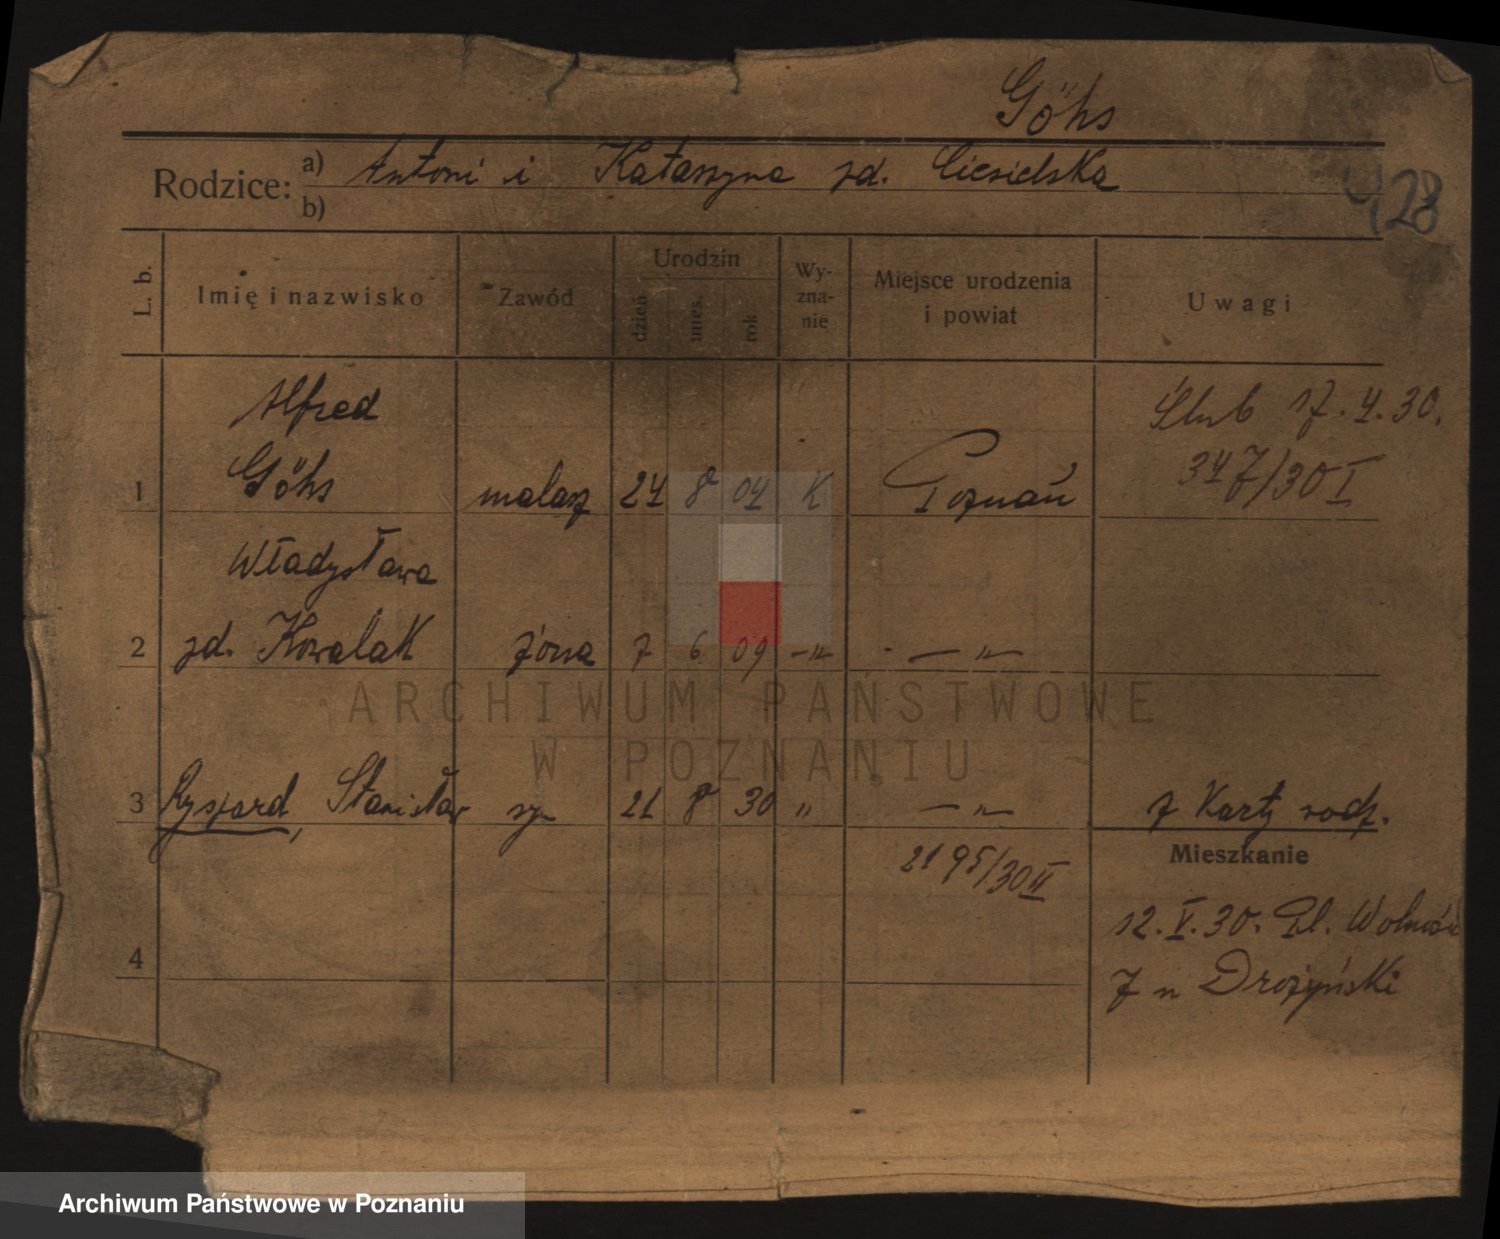 Göhs
Rodzice: a) Antoni i Katarzyna zd. Ciesielska
b)
428
L. b.
Imię i nazwisko
Zawód
Urodzin
dzień
mies.
rok
Wy-
zna-
nie
Miejsce urodzenia
i powiat
Uwagi
Alfred
Ślub 17.4.30.
1 Göhs malarz 24 8 04 K Poznań 347/30 I
Władysława
2 zd. Kowalak żona 7 6 09 -"- - " -
ARCHIWUM PAŃSTWOWE
W POZNANIU
3 Ryszard, Stanisław syn 21 8 30 " - " - z Karty rodz.
2195/30 II
Mieszkanie
12.V.30. Pl. Wolności
4
7 n Drożyński
Archiwum Państwowe w Poznaniu